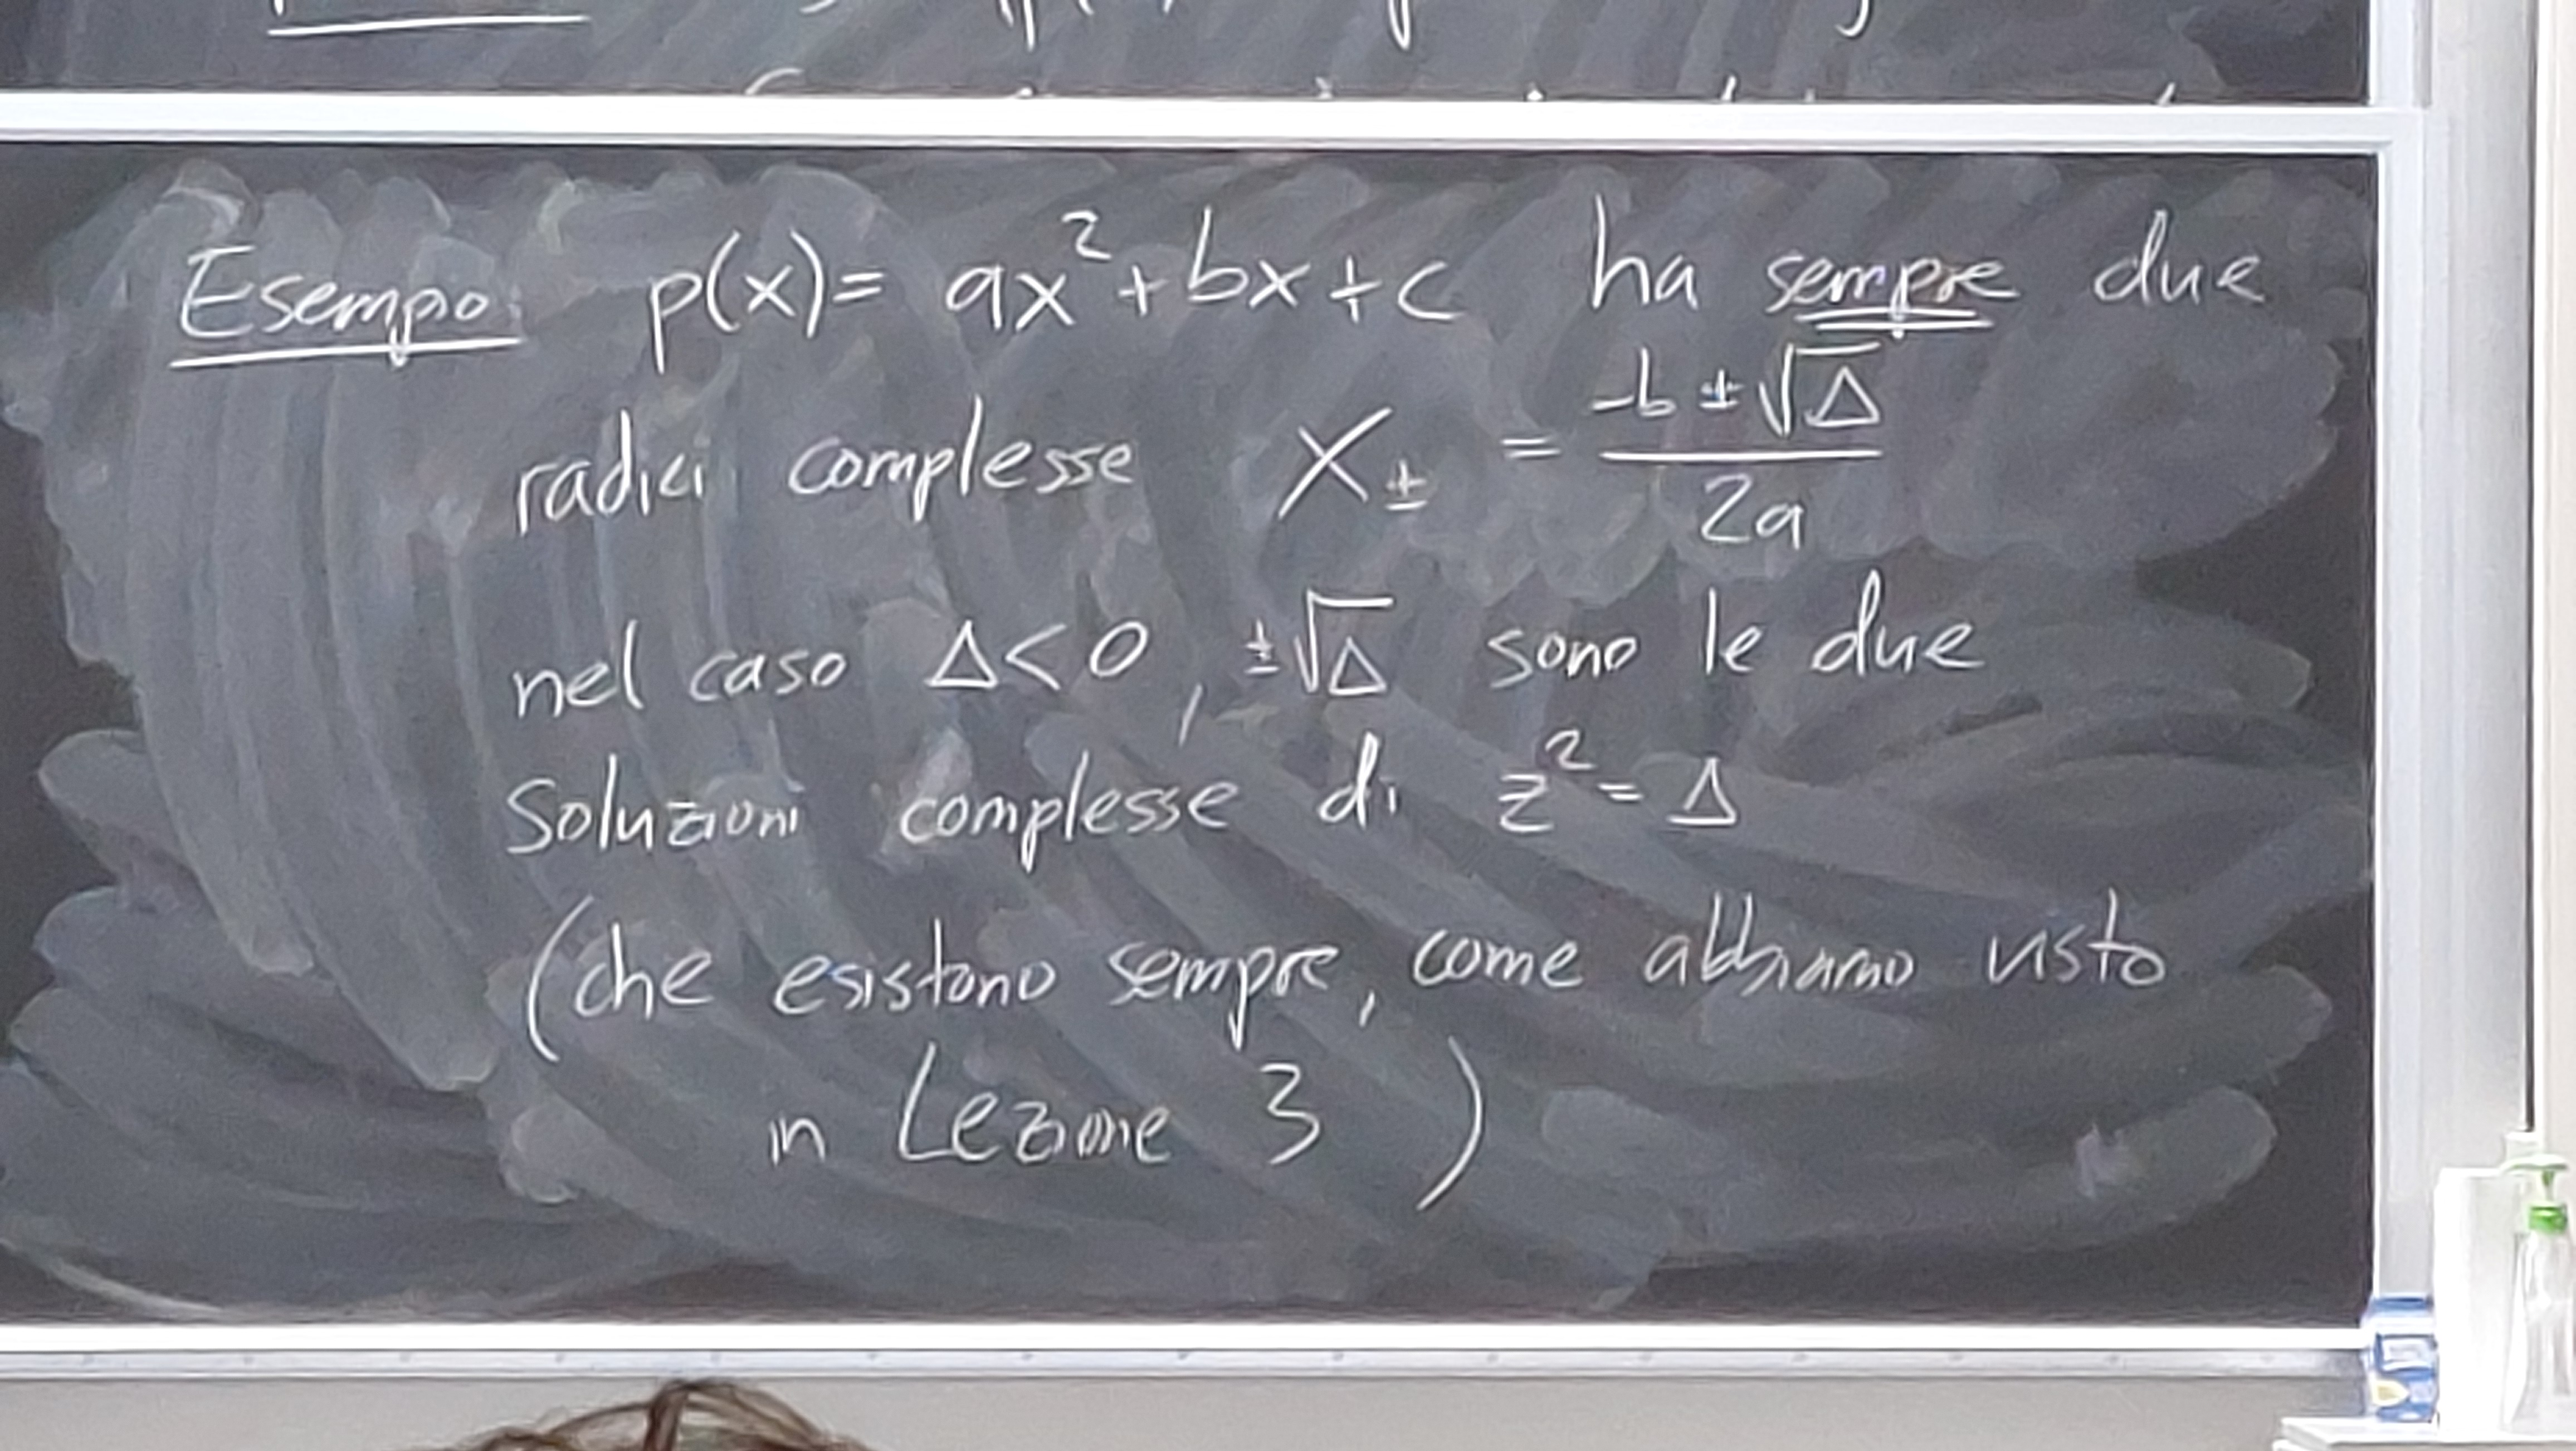 Esempio: p(x) = ax² + bx + c ha sempre due
radici complesse x± = (-b ± √Δ) / 2a
nel caso Δ < 0, ±√Δ sono le due
soluzioni complesse di z² = Δ
(che esistono sempre, come abbiamo visto
in Lezione 3)